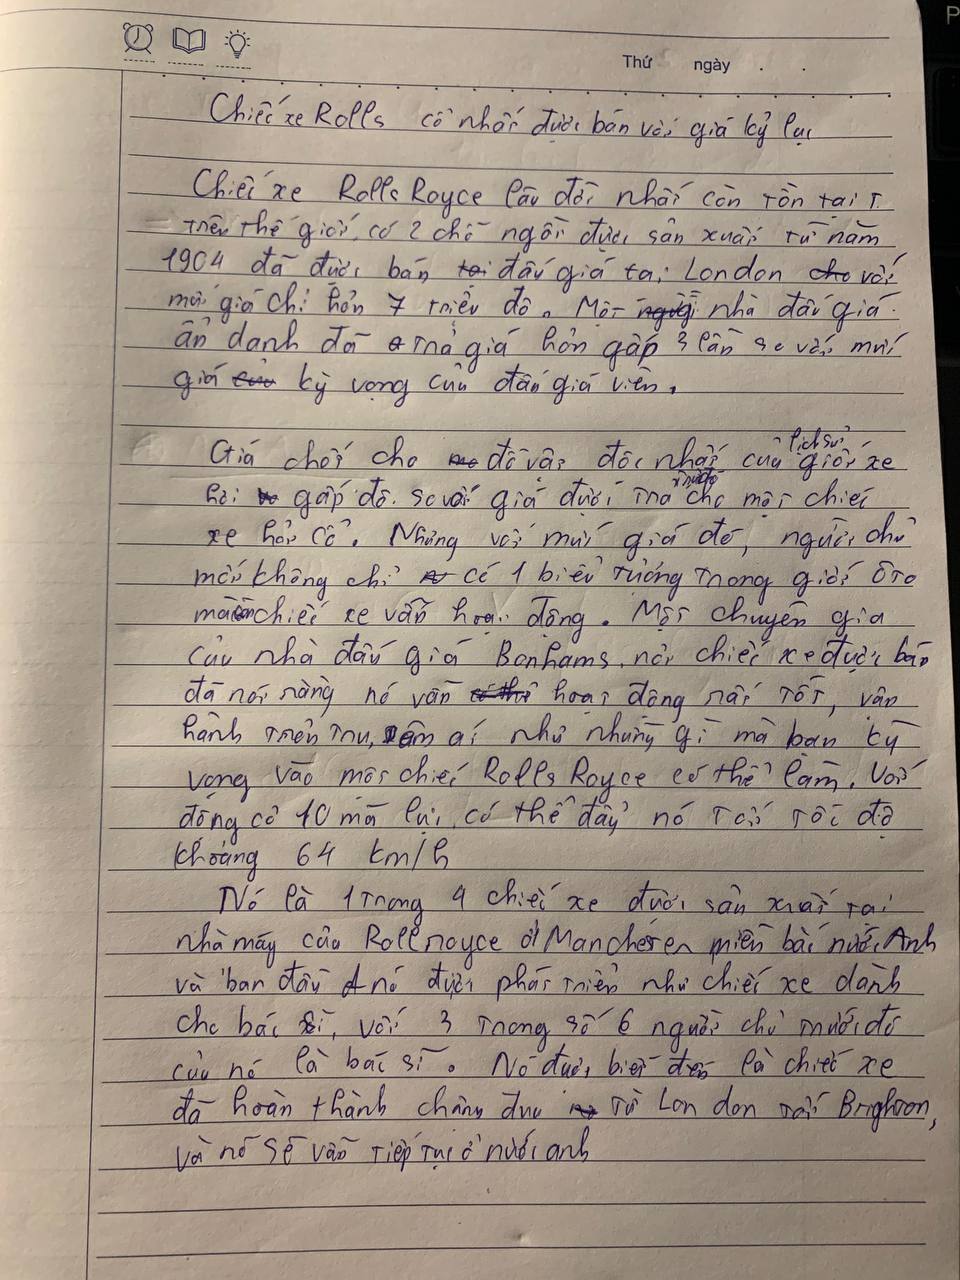 P
Thứ ngày . .
Chiếc xe Rolls cổ nhất được bán với giá kỷ lục
Chiếc xe Rolls Royce lâu đời nhất còn tồn tại
trên thế giới, có 2 chỗ ngồi được sản xuất từ năm
1904 đã được bán tại đấu giá tại London cho với
mức giá chỉ hơn 7 triệu đô. Một người nhà đấu giá
ẩn danh đã trả giá hơn gấp 3 lần so với mức
giá của kỳ vọng của đấu giá viên.
lịch sử
Giá chốt cho đồ vật độc nhất của giới xe
trước đó
hơi gấp đôi so với giá được tra cho một chiếc
xe hơi cổ. Nhưng với mức giá đó, người chủ
mới không chỉ có 1 biểu tượng trong giới ôto
mà còn chiếc xe vẫn hoạt động. Một chuyên gia
của nhà đấu giá Bonhams, nơi chiếc xe được bán
đã nói rằng nó vẫn có thể hoạt động rất tốt, vận
hành trơn tru, êm ái như những gì mà bạn kỳ
vọng vào một chiếc Rolls Royce có thể làm. Với
động cơ 10 mã lực, có thể đẩy nó tới tốc độ
khoảng 64 km/h
Nó là 1 trong 4 chiếc xe được sản xuất tại
nhà máy của Rollroyce ở Manchester miền bắc nước Anh
và ban đầu nó được phát triển như chiếc xe dành
cho bác sĩ, với 3 trong số 6 người chủ trước đó
của nó là bác sĩ. Nó được biết đến là chiếc xe
đã hoàn thành chặng đua từ London tới Brighton,
và nó sẽ vẫn tiếp tục ở nước anh